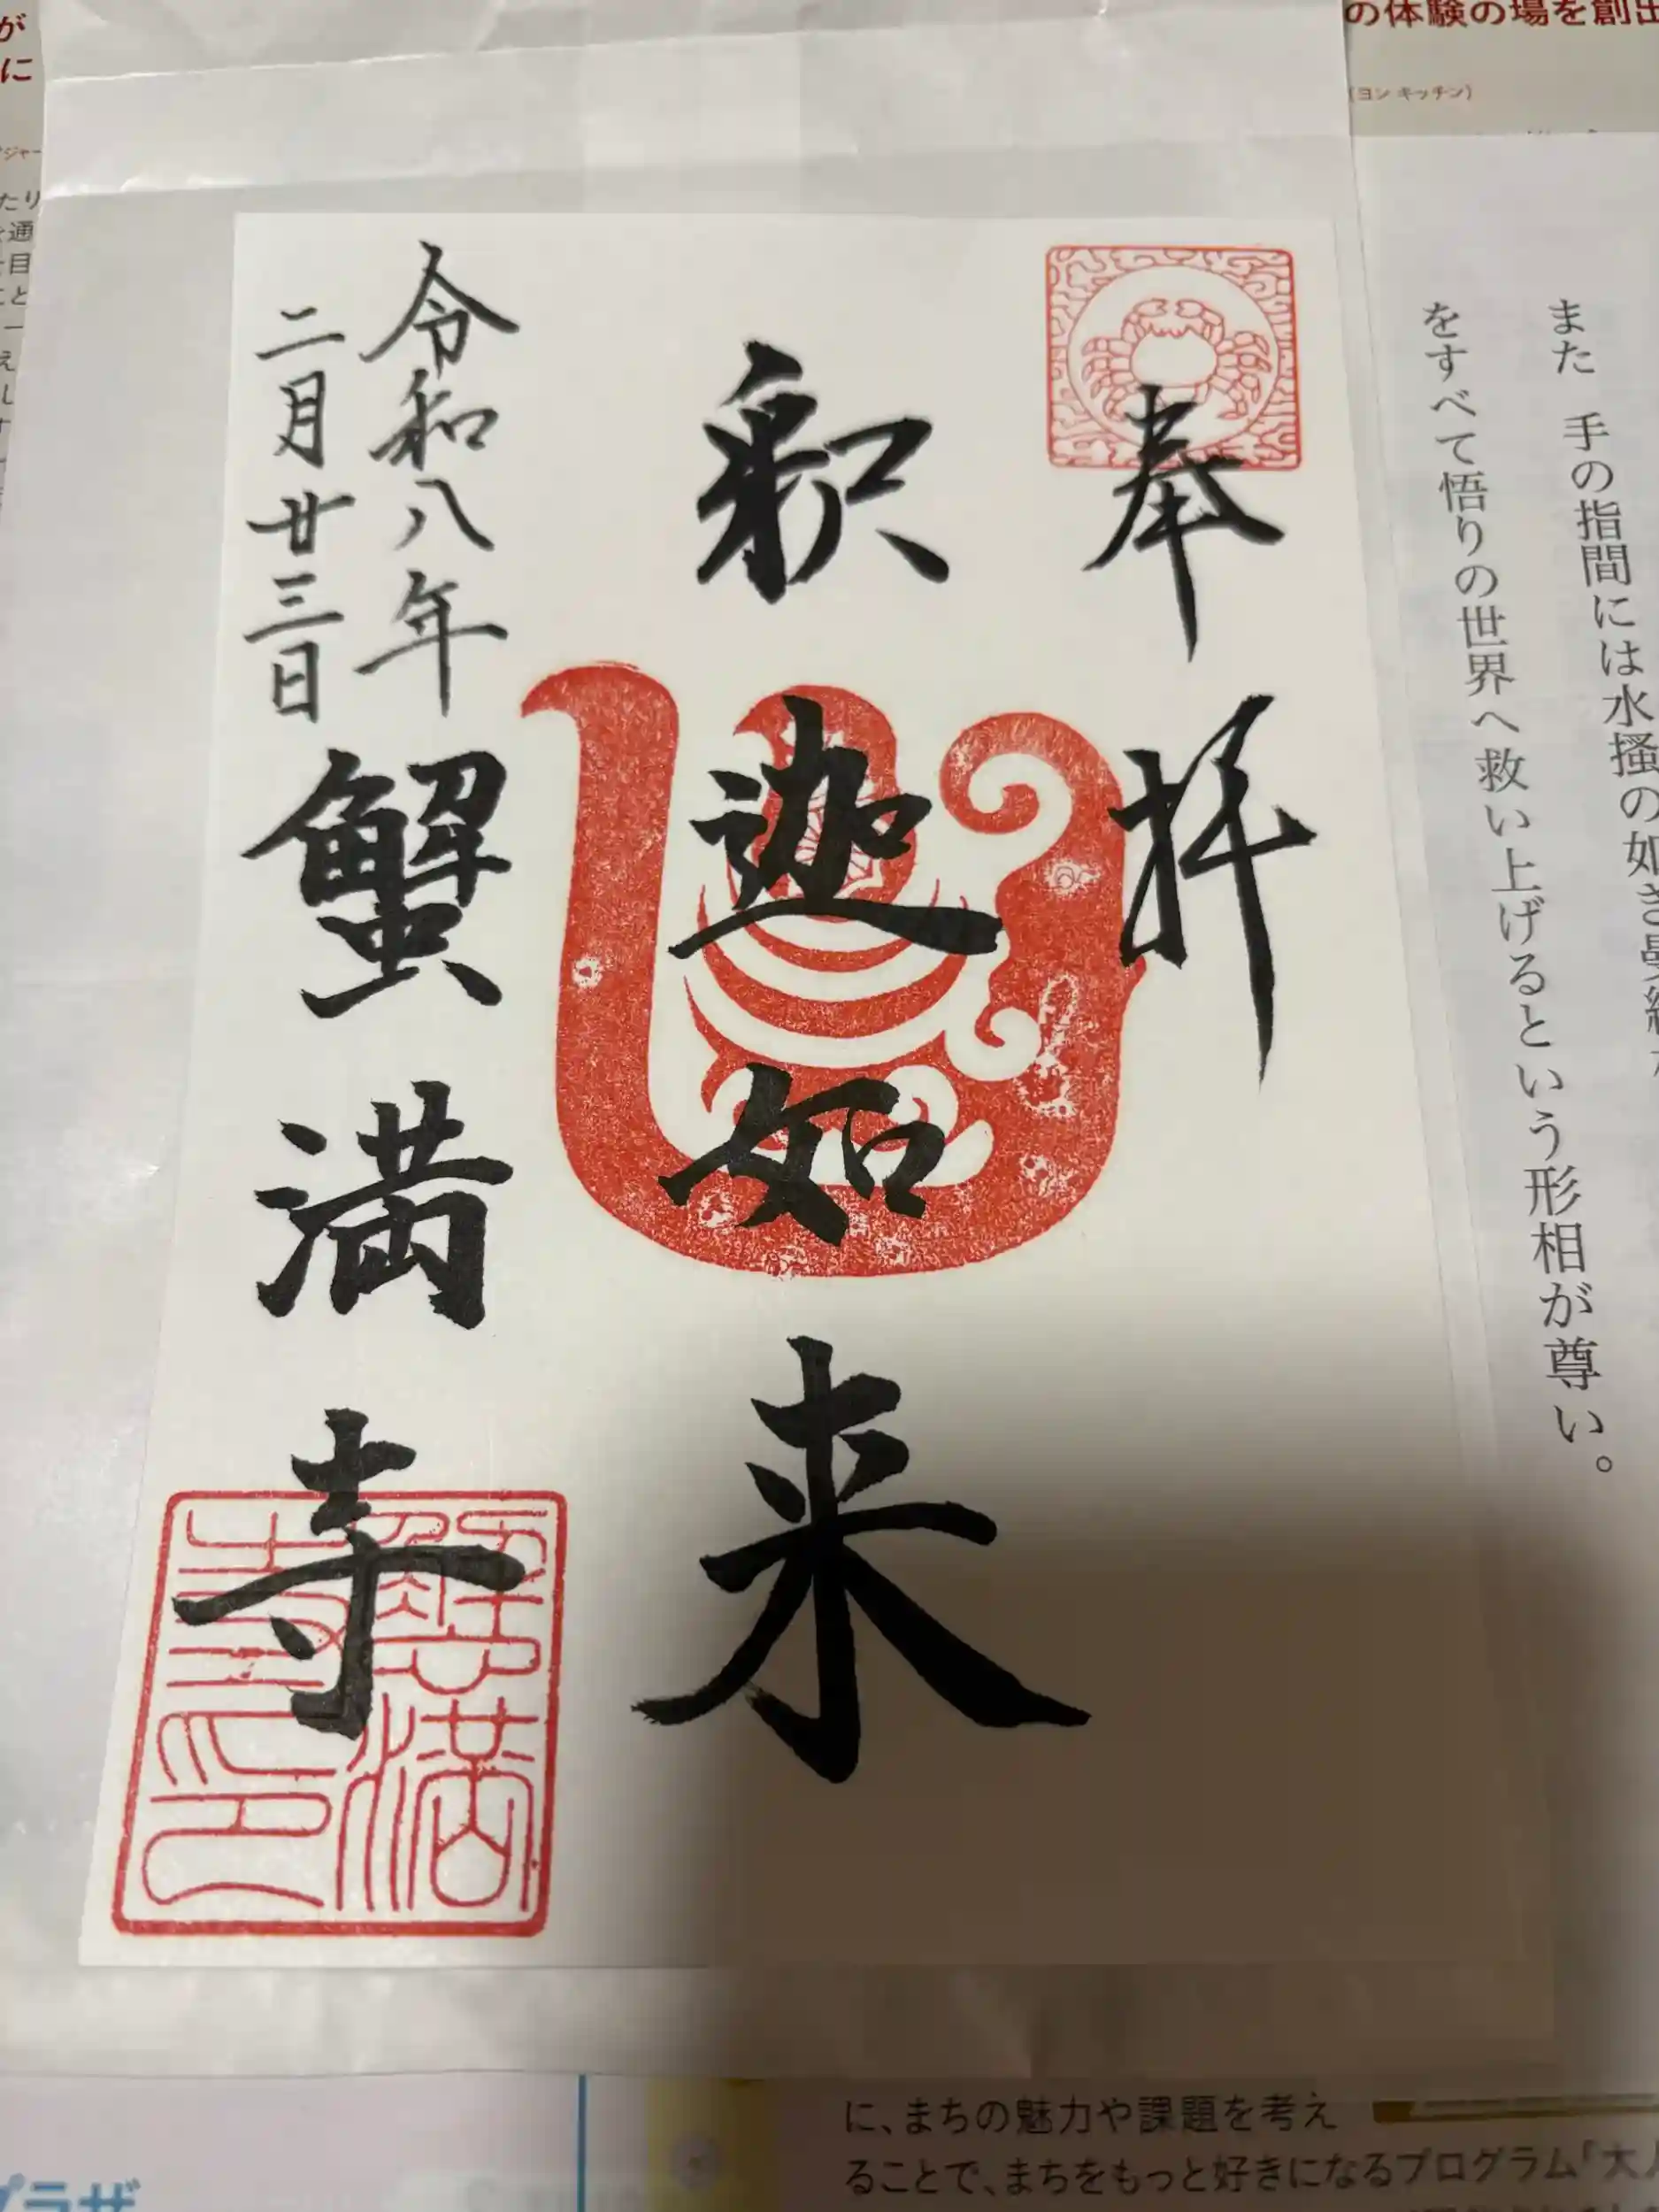 奉拝
釈迦如来
令和八年
二月廿三日
蟹満寺
蟹満寺印
また 手の指間には水掻の如き曼
をすべて悟りの世界へ救い上げるという形相が尊い。
の体験の場を創出
(ヨン キッチン)
が
に
たり
通
目
こと
に、まちの魅力や課題を考え
ることで、まちをもっと好きになるプログラム「大人
プラザ